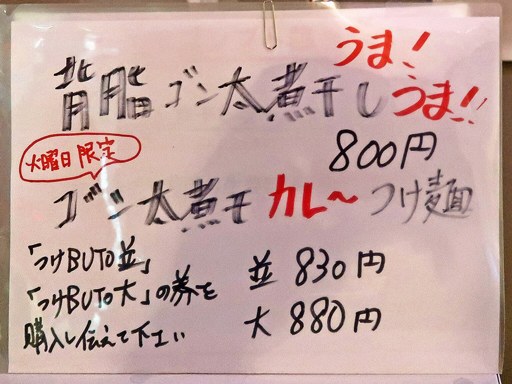 うま!
背脂ゴン太煮干し うま!!
800円
火曜日限定
ゴン太煮干 カレ〜つけ麺
「つけBUTO並」
「つけBUTO大」の券を
購入し伝えて下さい
並 830円
大 880円